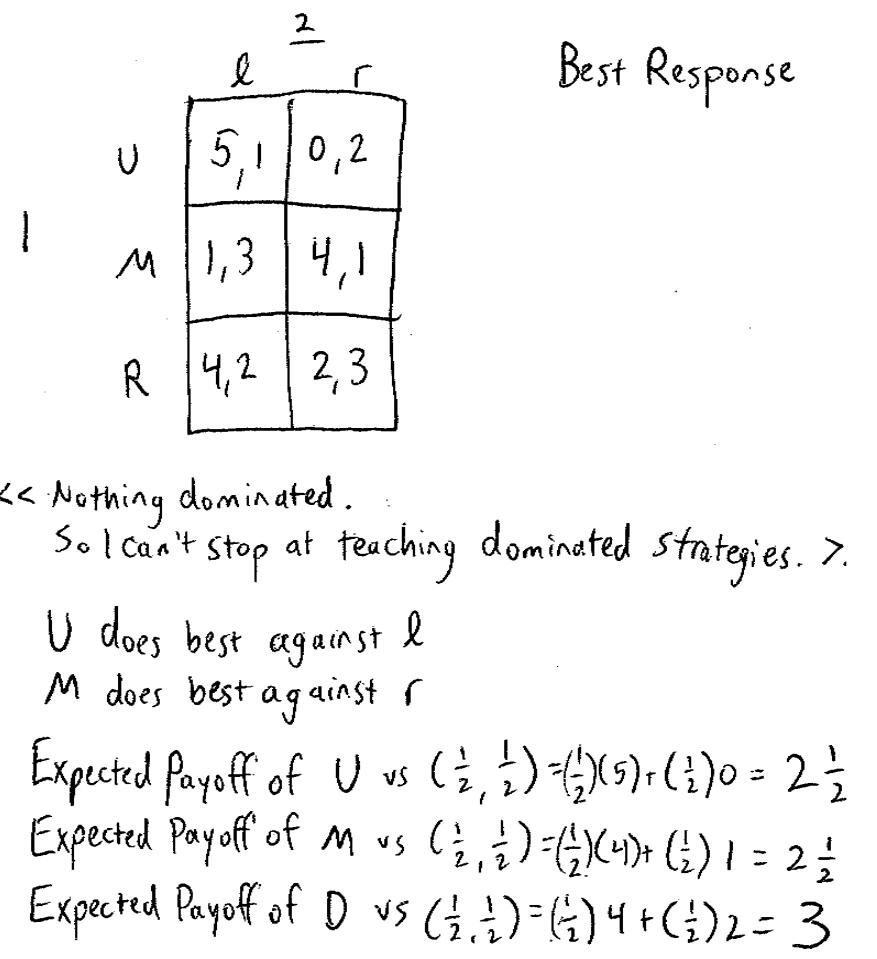 2
l r
Best Response
U 5,1 0,2
1
M 1,3 4,1
R 4,2 2,3
<< Nothing dominated.
So I can't stop at teaching dominated strategies. >.
U does best against l
M does best against r
Expected Payoff of U vs (1/2, 1/2) = (1/2)(5) + (1/2)0 = 2 1/2
Expected Payoff of M vs (1/2, 1/2) = (1/2)(4) + (1/2) 1 = 2 1/2
Expected Payoff of D vs (1/2, 1/2) = (1/2) 4 + (1/2) 2 = 3